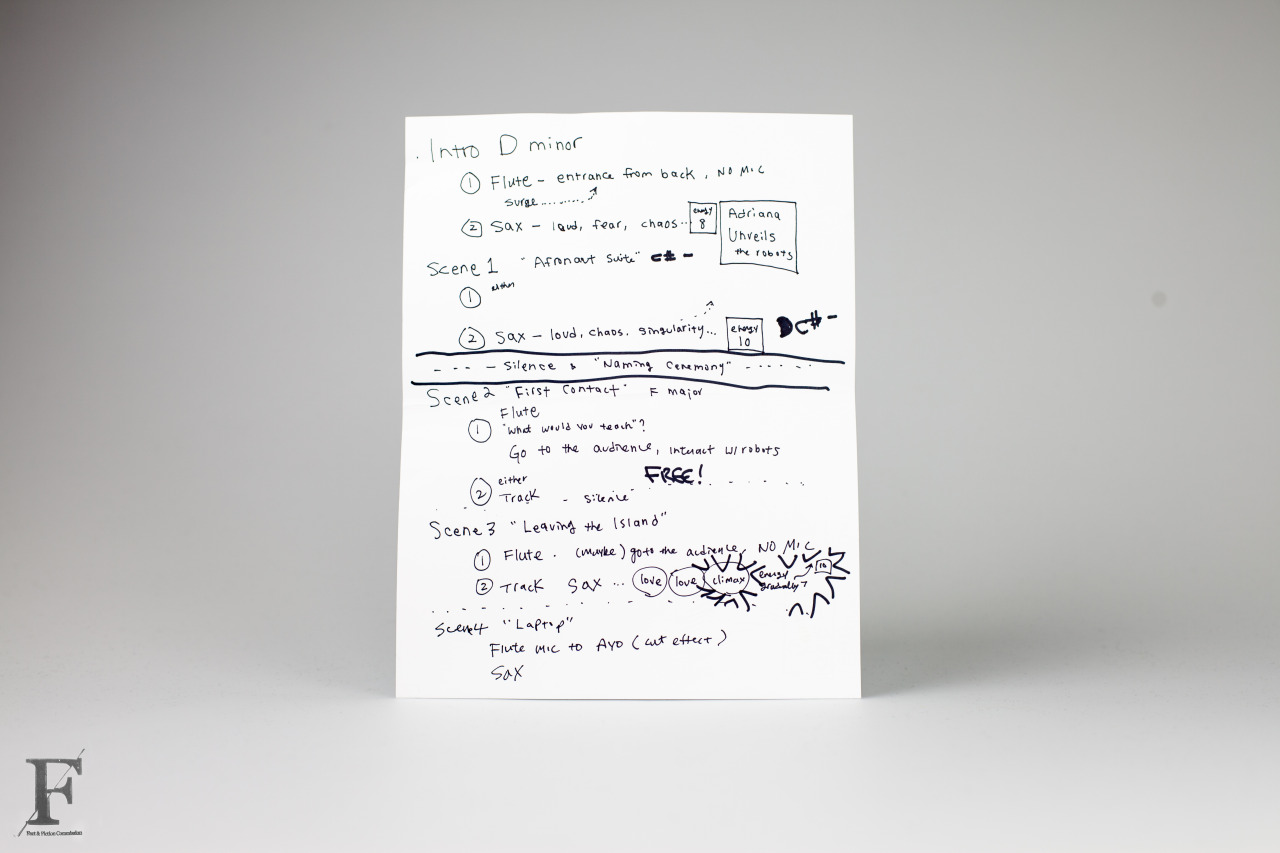 Intro D minor
1 Flute - entrance from back, NO MIC
surge........
2 Sax - loud, fear, chaos...
energy
8
Adriana
Unveils
the robots
Scene 1 "Afronaut Suite" C# -
1 either
2 Sax - loud, chaos, singularity...
energy
10
C# -
- - - - Silence & "Naming Ceremony" - . . . . .
Scene 2 "First Contact" F major
Flute
1 "What would you teach"?
Go to the audience, interact w/ robots
FREE!
either
2 Track - silence
Scene 3 "Leaving the Island"
1 Flute. (maybe) go to the audience, NO MIC
2 Track Sax ... love love climax
energy
gradually
10
Scene 4 "Laptop"
Flute mic to Ayo (cut effect)
Sax
F
Fact & Fiction Consultation